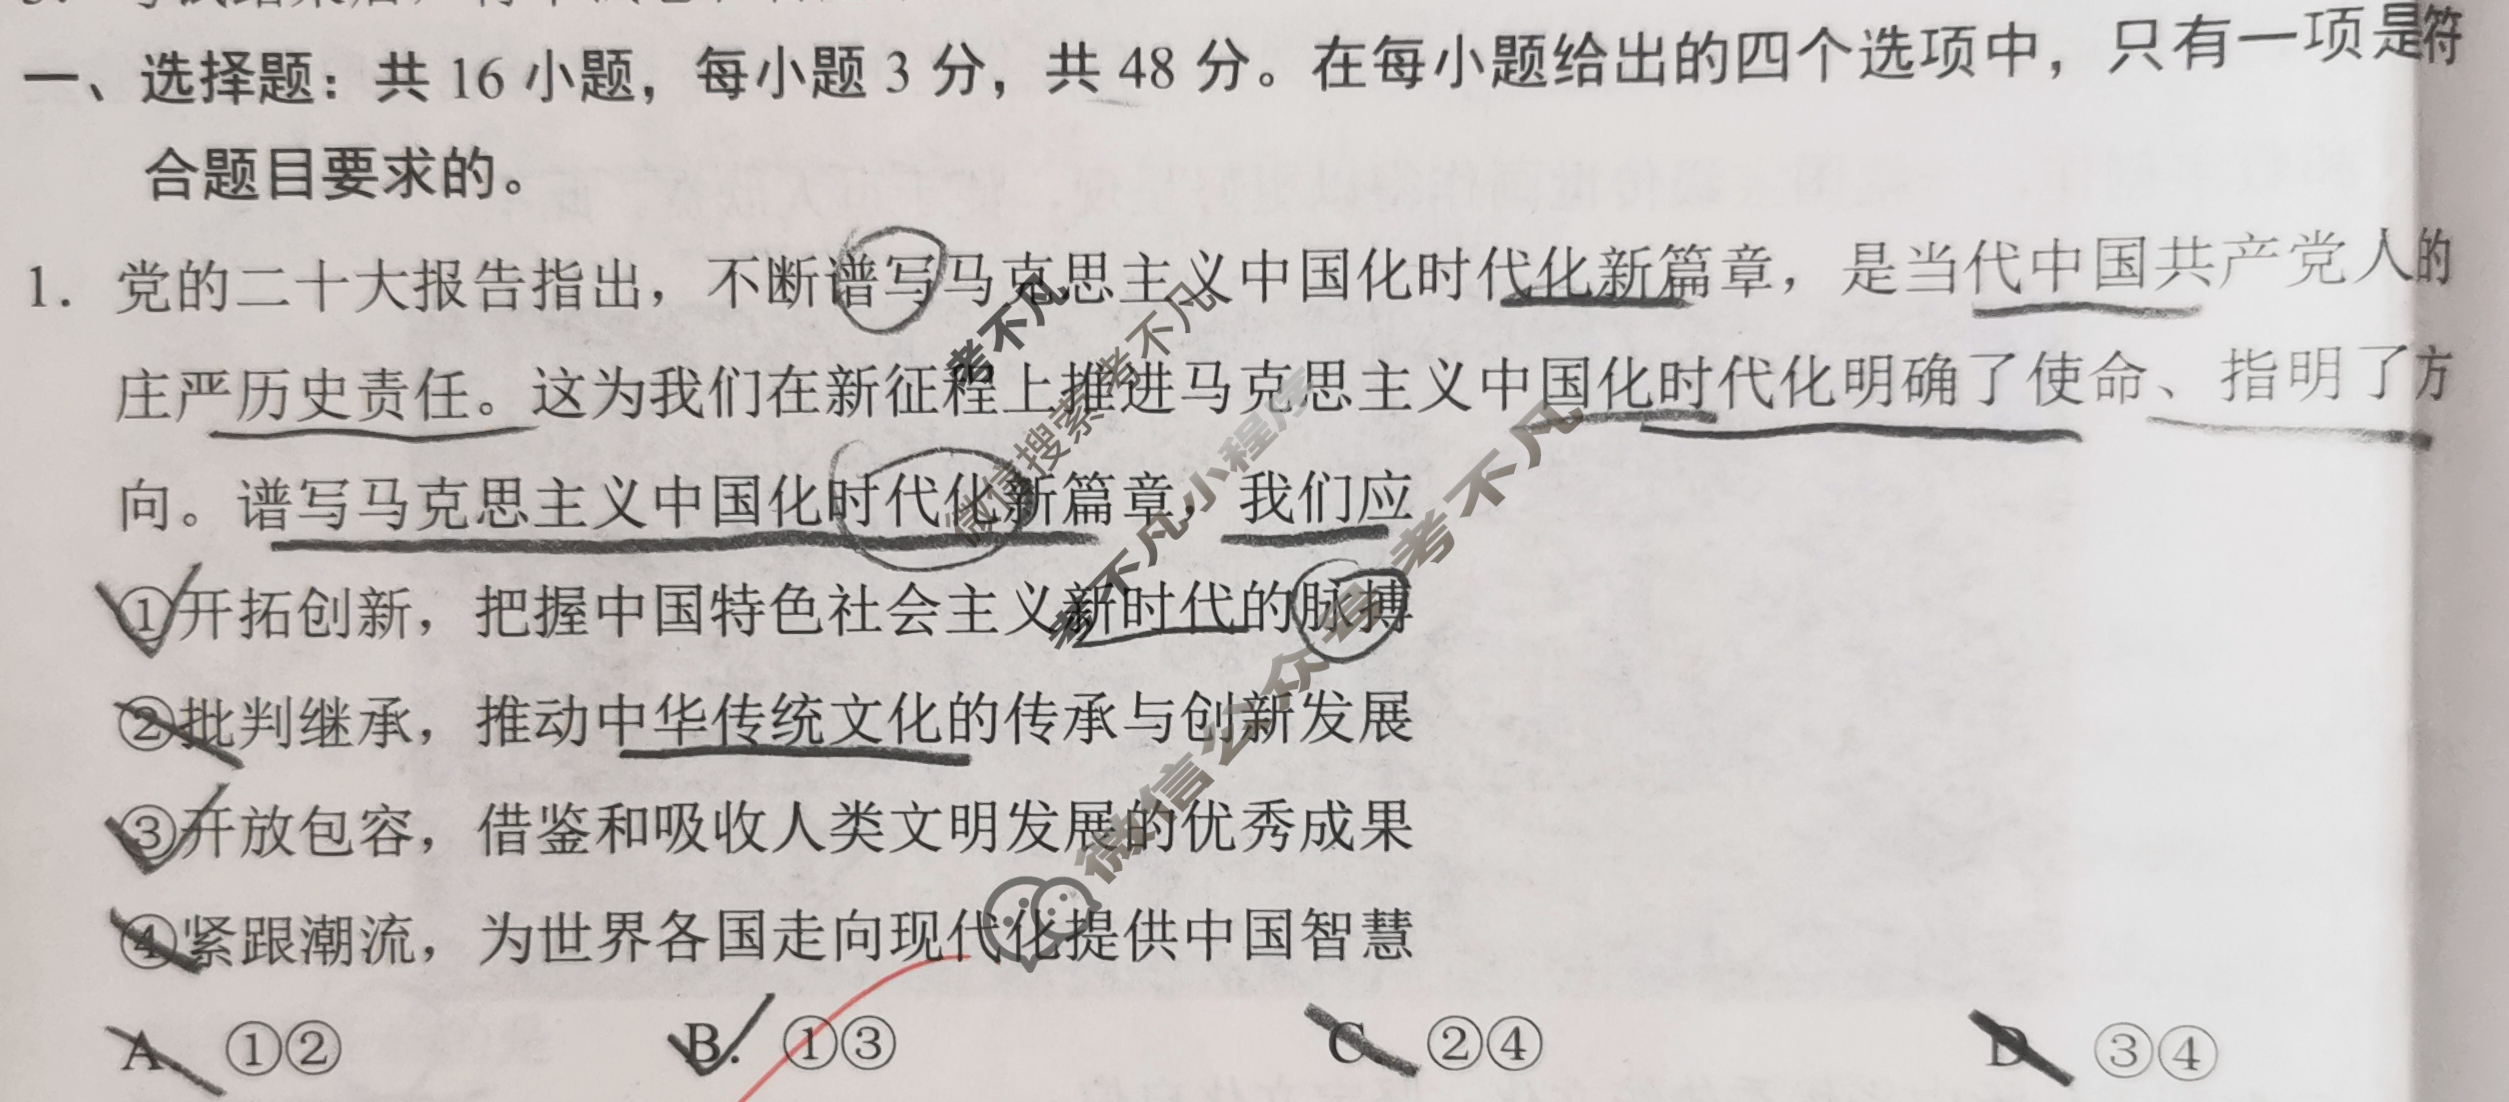 一、选择题：共 16 小题，每小题 3 分，共 48 分。在每小题给出的四个选项中，只有一项是符
合题目要求的。
1. 党的二十大报告指出，不断谱写马克思主义中国化时代化新篇章，是当代中国共产党人的
庄严历史责任。这为我们在新征程上推进马克思主义中国化时代化明确了使命、指明了方
向。谱写马克思主义中国化时代化新篇章，我们应
①开拓创新，把握中国特色社会主义新时代的脉搏
②批判继承，推动中华传统文化的传承与创新发展
③开放包容，借鉴和吸收人类文明发展的优秀成果
④紧跟潮流，为世界各国走向现代化提供中国智慧
A. ①② B. ①③ C. ②④ D. ③④
考不凡
微信搜索考不凡
考不凡小程序
微信公众号考不凡